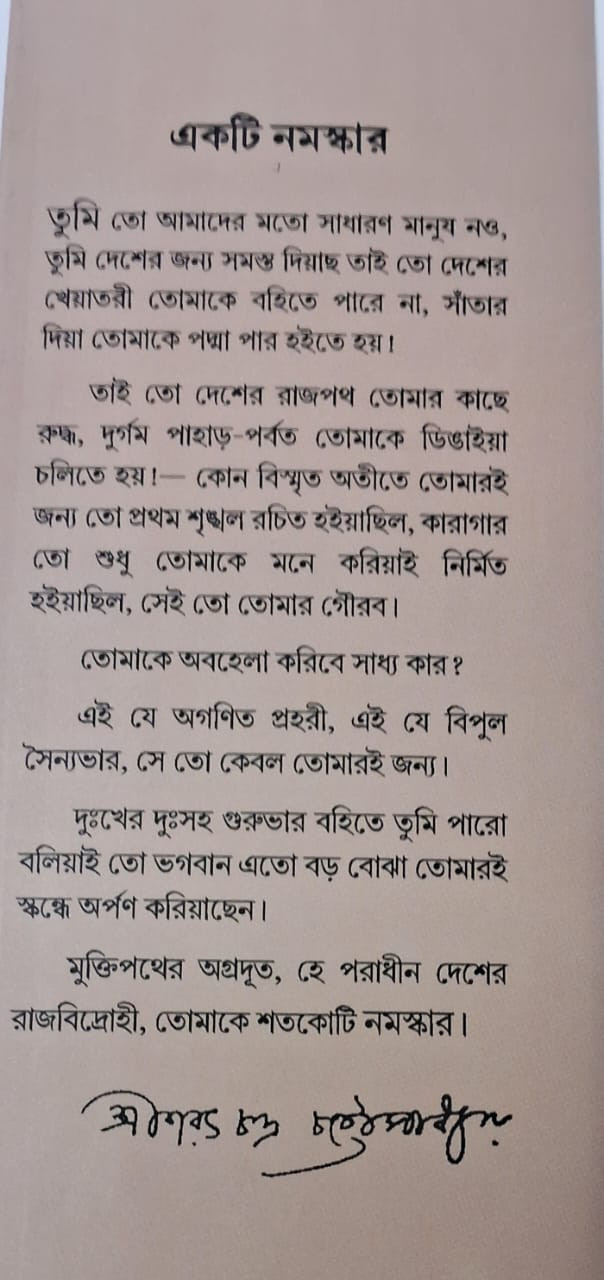 একটি নমস্কার
তুমি তো আমাদের মতো সাধারণ মানুষ নও,
তুমি দেশের জন্য সমস্ত দিয়াছ তাই তো দেশের
খেয়াতরী তোমাকে বহিতে পারে না, সাঁতার
দিয়া তোমাকে পদ্মা পার হইতে হয়!
তাই তো দেশের রাজপথ তোমার কাছে
রুদ্ধ, দুর্গম পাহাড়-পর্বত তোমাকে ডিঙাইয়া
চলিতে হয়!— কোন বিস্মৃত অতীতে তোমারই
জন্য তো প্রথম শৃঙ্খল রচিত হইয়াছিল, কারাগার
তো শুধু তোমাকে মনে করিয়াই নির্মিত
হইয়াছিল, সেই তো তোমার গৌরব।
তোমাকে অবহেলা করিবে সাধ্য কার?
এই যে অগণিত প্রহরী, এই যে বিপুল
সৈন্যভার, সে তো কেবল তোমারই জন্য।
দুঃখের দুঃসহ গুরুভার বহিতে তুমি পারো
বলিয়াই তো ভগবান এতো বড় বোঝা তোমারই
স্কন্ধে অর্পণ করিয়াছেন।
মুক্তিপথের অগ্রদূত, হে পরাধীন দেশের
রাজবিদ্রোহী, তোমাকে শতকোটি নমস্কার।
শ্রীশরৎ চন্দ্র চট্টোপাধ্যায়